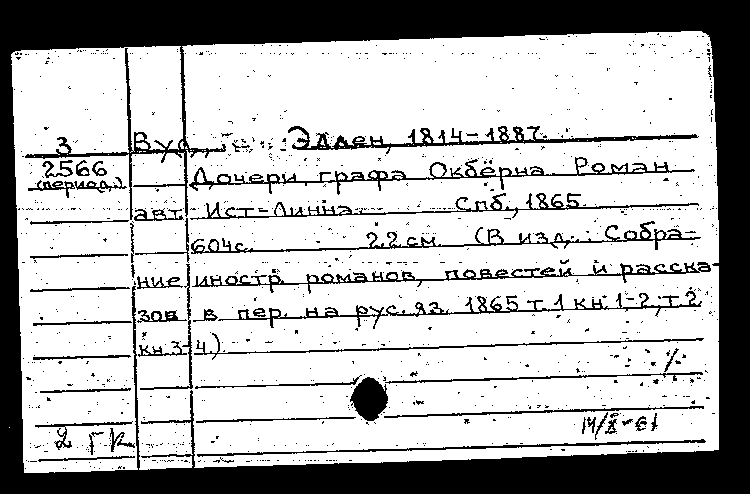 3 Вуд, Эллен, 1814-1887.
2566
(период.) Дочери графа Окбёрна. Роман
авт. Ист-Линна. Спб., 1865.
604с. 22 см. (В изд.: Собра-
ние иностр. романов, повестей и расска-
зов в пер. на рус. яз. 1865 т. 1 кн. 1-2, т 2
кн. 3-4.)